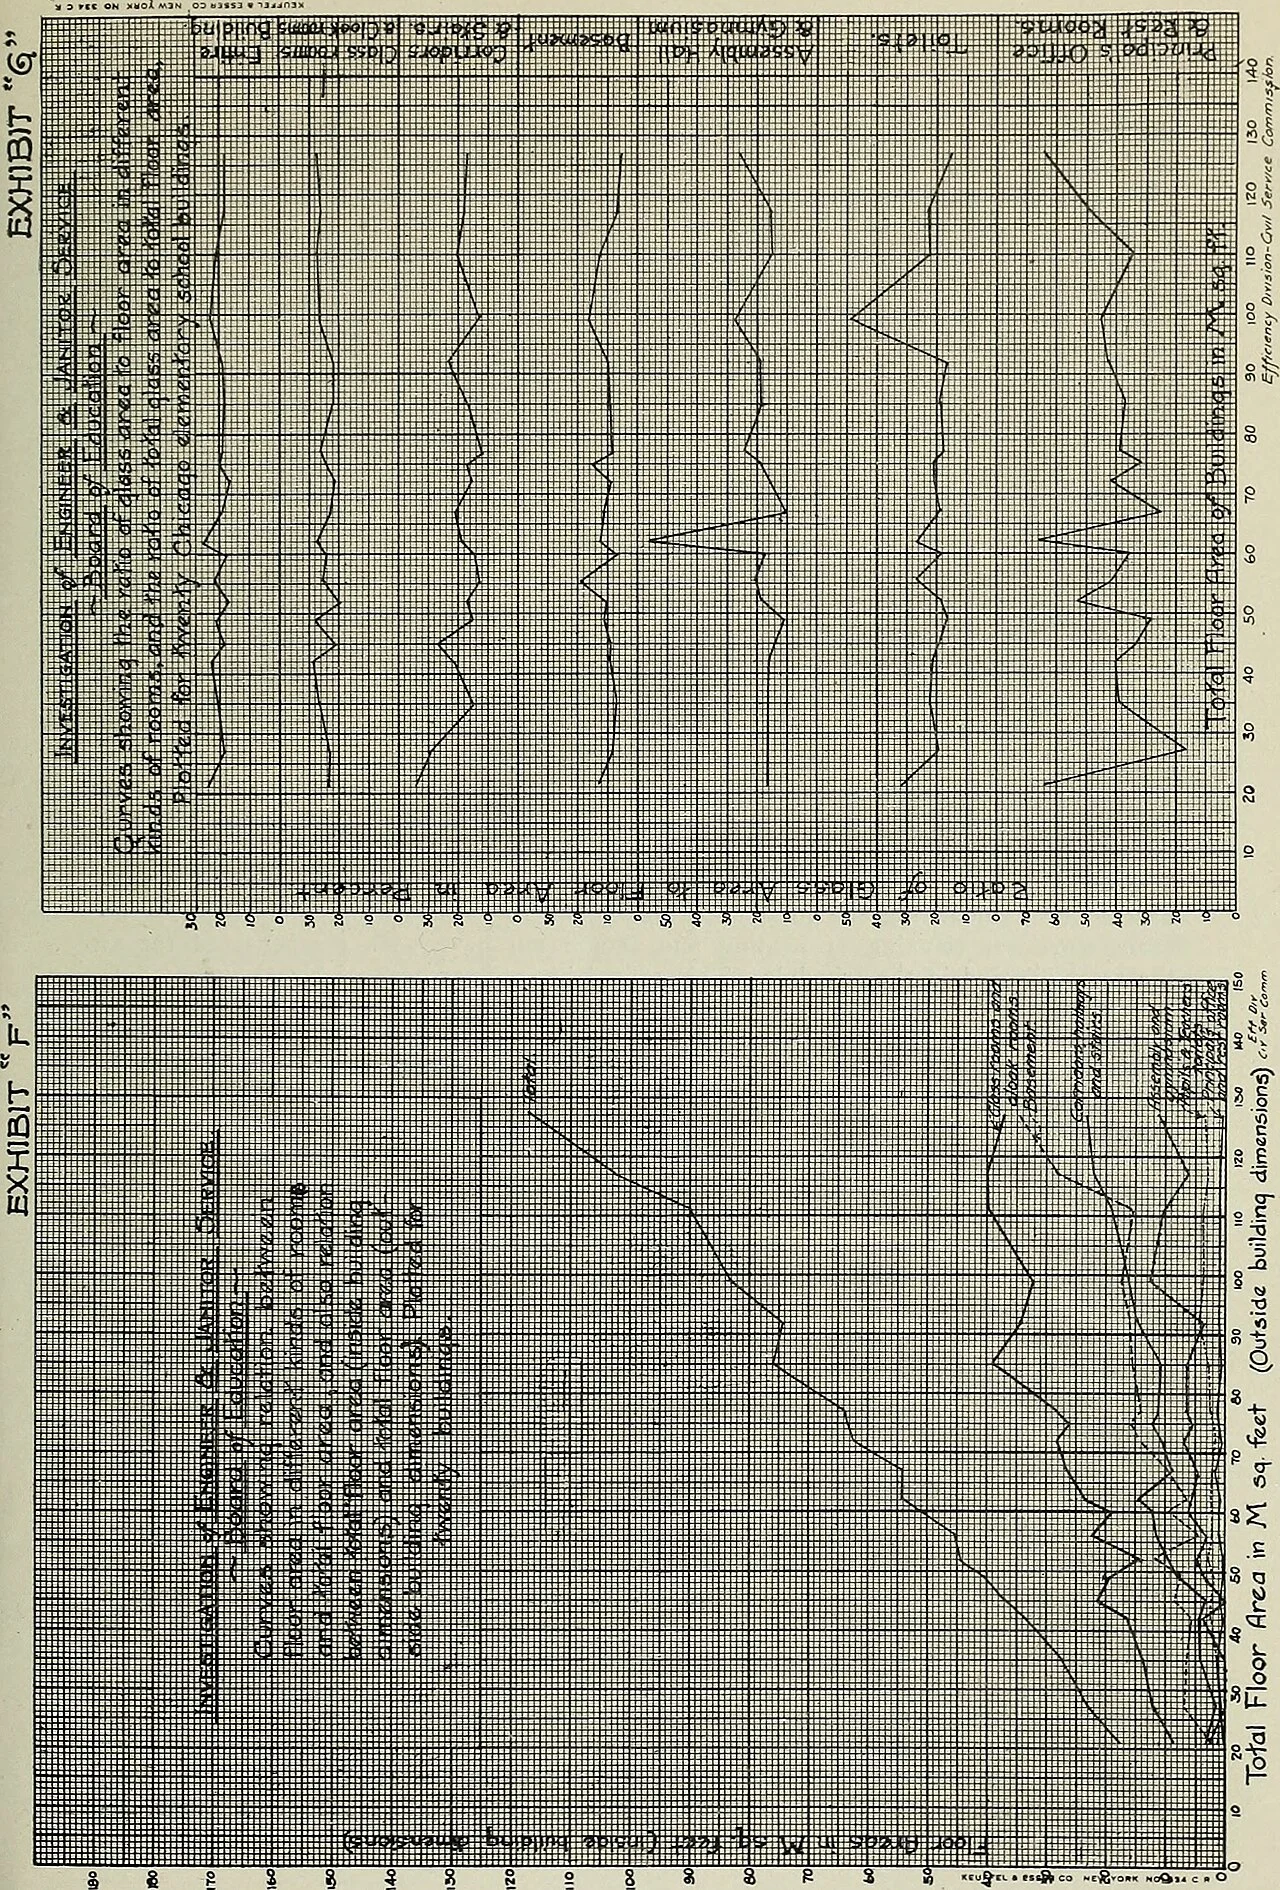 EXHIBIT "F"
INVESTIGATION of ENGINEER & JANITOR SERVICE
~ Board of Education ~
Curves showing relation between
floor area in different kinds of rooms
and total floor area, and also relation
between total floor area (inside building
dimensions) and total floor area (out-
side building dimensions) Plotted for
twenty buildings.
Total
Class rooms and
cloak rooms
Basement
Corridors, hallways
and stairs
Assembly and
gymnasium
Pupils & Teachers
toilets
Principals office
and rest rooms
Floor Areas in M sq. feet (inside building dimensions)
180
170
160
150
140
130
120
110
100
90
80
70
60
50
40
30
20
10
0
0 10 20 30 40 50 60 70 80 90 100 110 120 130 140 150
Total Floor Area in M sq. feet (Outside building dimensions)
Eff Div
Civ Ser Comm
KEUFFEL & ESSER CO NEW YORK NO 334 C R
EXHIBIT "G"
INVESTIGATION of ENGINEER & JANITOR SERVICE
~ Board of Education ~
Curves showing the ratio of glass area to floor area in different
kinds of rooms, and the ratio of total glass area to total floor area,
Plotted for twenty Chicago elementary school buildings.
Entire
Building
Class rooms
& Cloak rooms
Corridors
& Stairs.
Basement
Assembly Hall
& Gymnasium
Toilets.
Principal's Office
& Rest Rooms.
Ratio of Glass Area to Floor Area in Percent
30
20
10
0
30
20
10
0
30
20
10
0
30
20
10
0
50
40
30
20
10
0
50
40
30
20
10
0
70
60
50
40
30
20
10
0
10 20 30 40 50 60 70 80 90 100 110 120 130 140
Total Floor Area of Buildings in M. sq. ft.
Efficiency Division-Civil Service Commission.
KEUFFEL & ESSER CO NEW YORK NO 334 C R